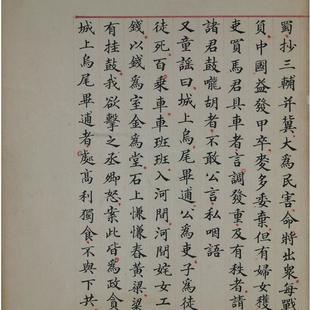 蜀抄三輔并冀大為民害命將出眾每戰
負中國益發甲卒麥多委棄但有婦女穫
吏買馬君具車者言調發重及有秩者請
諸君鼓嚨胡者不敢公言私咽語
又童謠曰城上烏尾畢逋公為吏子為徒
徒死百乘車車班班入河間河間姹女工
錢以錢為室金為堂石上慊慊舂黃粱梁
有挂鼓我欲擊之丞卿怒案此皆為政貪
城上烏尾畢逋者處高利獨食不與下共